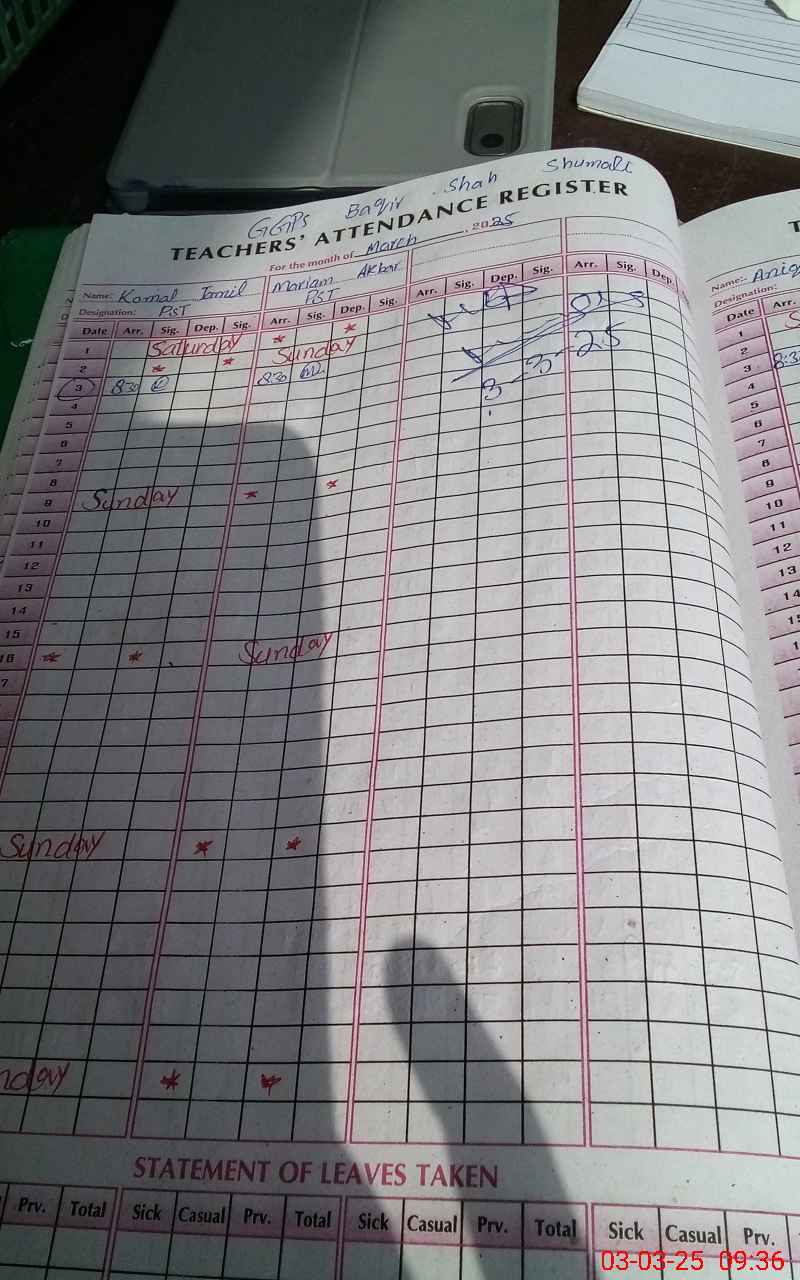 GGPS Baqir Shah Shumali
TEACHERS' ATTENDANCE REGISTER
For the month of March, 2025
Name: Komal Jamil Mariam Akbar
Designation: PST PST
Date Arr. Sig. Dep. Sig. Arr. Sig. Dep. Sig. Arr. Sig. Dep. Sig. Arr. Sig. Dep.
1 Saturday * *
2 * * Sunday
3 8:30 8:30
3-3-25
4
5
6
7
8
9 Sunday * *
10
11
12
13
14
15
16 * * Sunday
7
Sunday * *
nday * *
STATEMENT OF LEAVES TAKEN
Prv. Total Sick Casual Prv. Total Sick Casual Prv. Total Sick Casual Prv.
T
Name:- Aniq
Designation:
Date Arr.
1 S
2
3 8:3
4
5
6
7
8
9
10
11
12
13
14
15
1
03-03-25 09:36